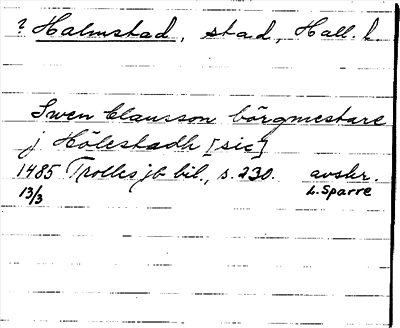 ? Halmstad, stad, Hall. l.
Swen Clausson börgmestare
j Hölestadh [sic]
1485 Trolles jb bil., s. 230. avskr.
13/3 L. Sparre